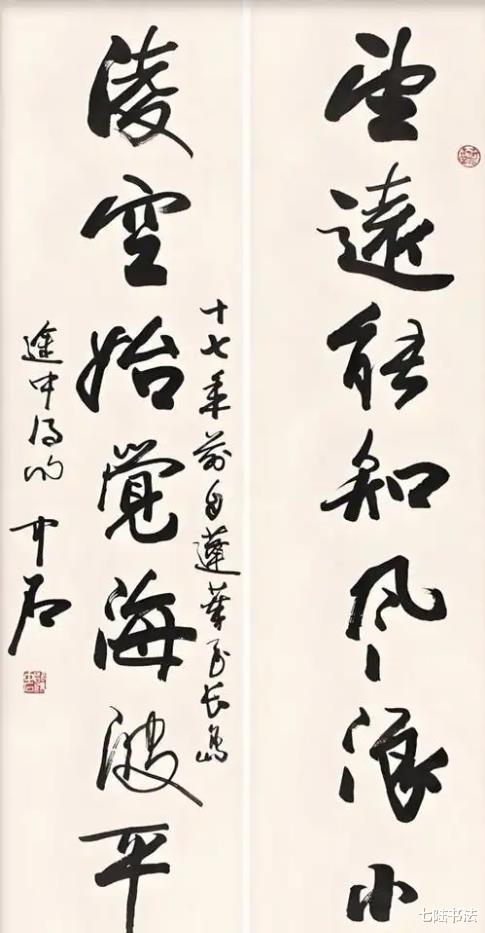 望遠能知风浪小
淩空始覺海波平
十七年前自蓬莱至长岛
途中得句 中石
七陆书法